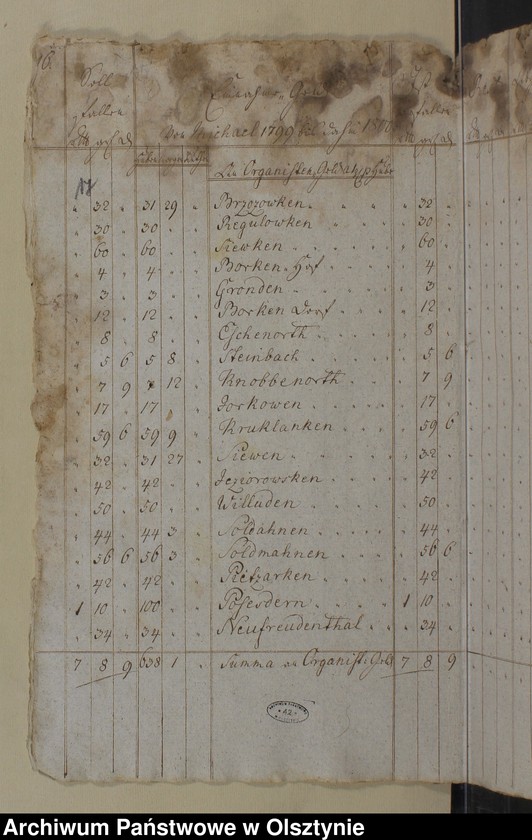 16.
Soll
fallen
von Michael 1799 bis dahin 1800
An Organisten Geld
17
" 32 " 31 29 " Brzozowken " 32 "
" 30 " 30 " " Regulowken " 30 "
" 60 " 60 " " Siewken " 60 "
" 4 " 4 " " Borken Hof " 4 "
" 3 " 3 " " Gronden " 3 "
" 12 " 12 " " Borken Dorf " 12 "
" 8 " 8 " " Eschenorth " 8 "
" 5 6 5 8 " Steinbach " 5 6
" 7 9 " 12 " Knobbenorth " 7 9
" 17 " 17 " " Jorkowen " 17 "
" 59 6 59 9 " Kruklanken " 59 6
" 32 " 31 27 " Siewen " 32 "
" 42 " 42 " " Jeziorowsken " 42 "
" 50 " 50 " " Willuden " 50 "
" 44 " 44 3 " Soldahnen " 44 "
" 56 6 56 3 " Soldmahnen " 56 6
" 42 " 42 " " Pietzarken " 42 "
1 10 " 100 " " Posesdern 1 10 "
" 34 " 34 " " Neufreudenthal " 34 "
7 8 9 638 1 " Summa an Organist: Geld 7 8 9
Archiwum Państwowe w Olsztynie